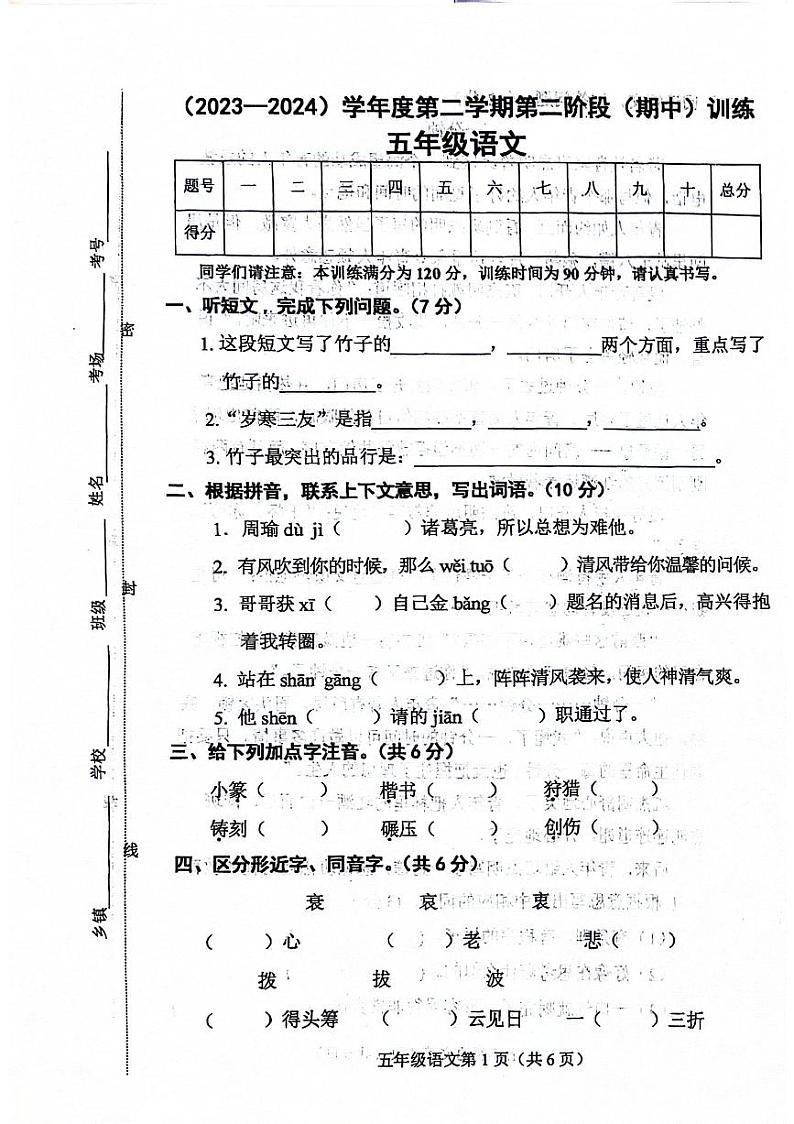 （2023—2024）学年度第二学期第二阶段（期中）训练
五年级语文
题号 一 二 三 四 五 六 七 八 九 十 总分
得分
同学们请注意：本训练满分为120分，训练时间为90分钟，请认真书写。
一、听短文，完成下列问题。（7分）
1. 这段短文写了竹子的__________，__________两个方面，重点写了
竹子的__________。
2. “岁寒三友”是指__________，__________，__________。
3. 竹子最突出的品行是：______________________________。
二、根据拼音，联系上下文意思，写出词语。（10分）
1. 周瑜 dù jì（ ）诸葛亮，所以总想为难他。
2. 有风吹到你的时候，那么 wěi tuō（ ）清风带给你温馨的问候。
3. 哥哥获 xī（ ）自己金 bǎng（ ）题名的消息后，高兴得抱
着我转圈。
4. 站在 shān gāng（ ）上，阵阵清风袭来，使人神清气爽。
5. 他 shēn（ ）请的 jiān（ ）职通过了。
三、给下列加点字注音。（共6分）
小篆（ ） 楷书（ ） 狩猎（ ）
铸刻（ ） 碾压（ ） 创伤（ ）
四、区分形近字、同音字。（共6分）
衰 哀 衷
（ ）心 （ ）老 悲（ ）
拨 拔 波
（ ）得头筹 （ ）云见日 一（ ）三折
五年级语文第1页（共6页）
乡镇________学校________班级________姓名________考场________考号________
密
封
线